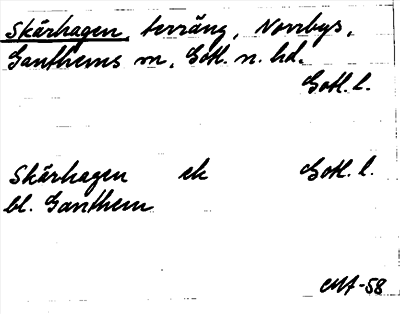 Skärhagen, terräng, Norrbys,
Ganthems sn, Gotl. n. hd.
Gotl. l.
Skärhagen ek Gotl. l.
bl. Ganthem
MA-58